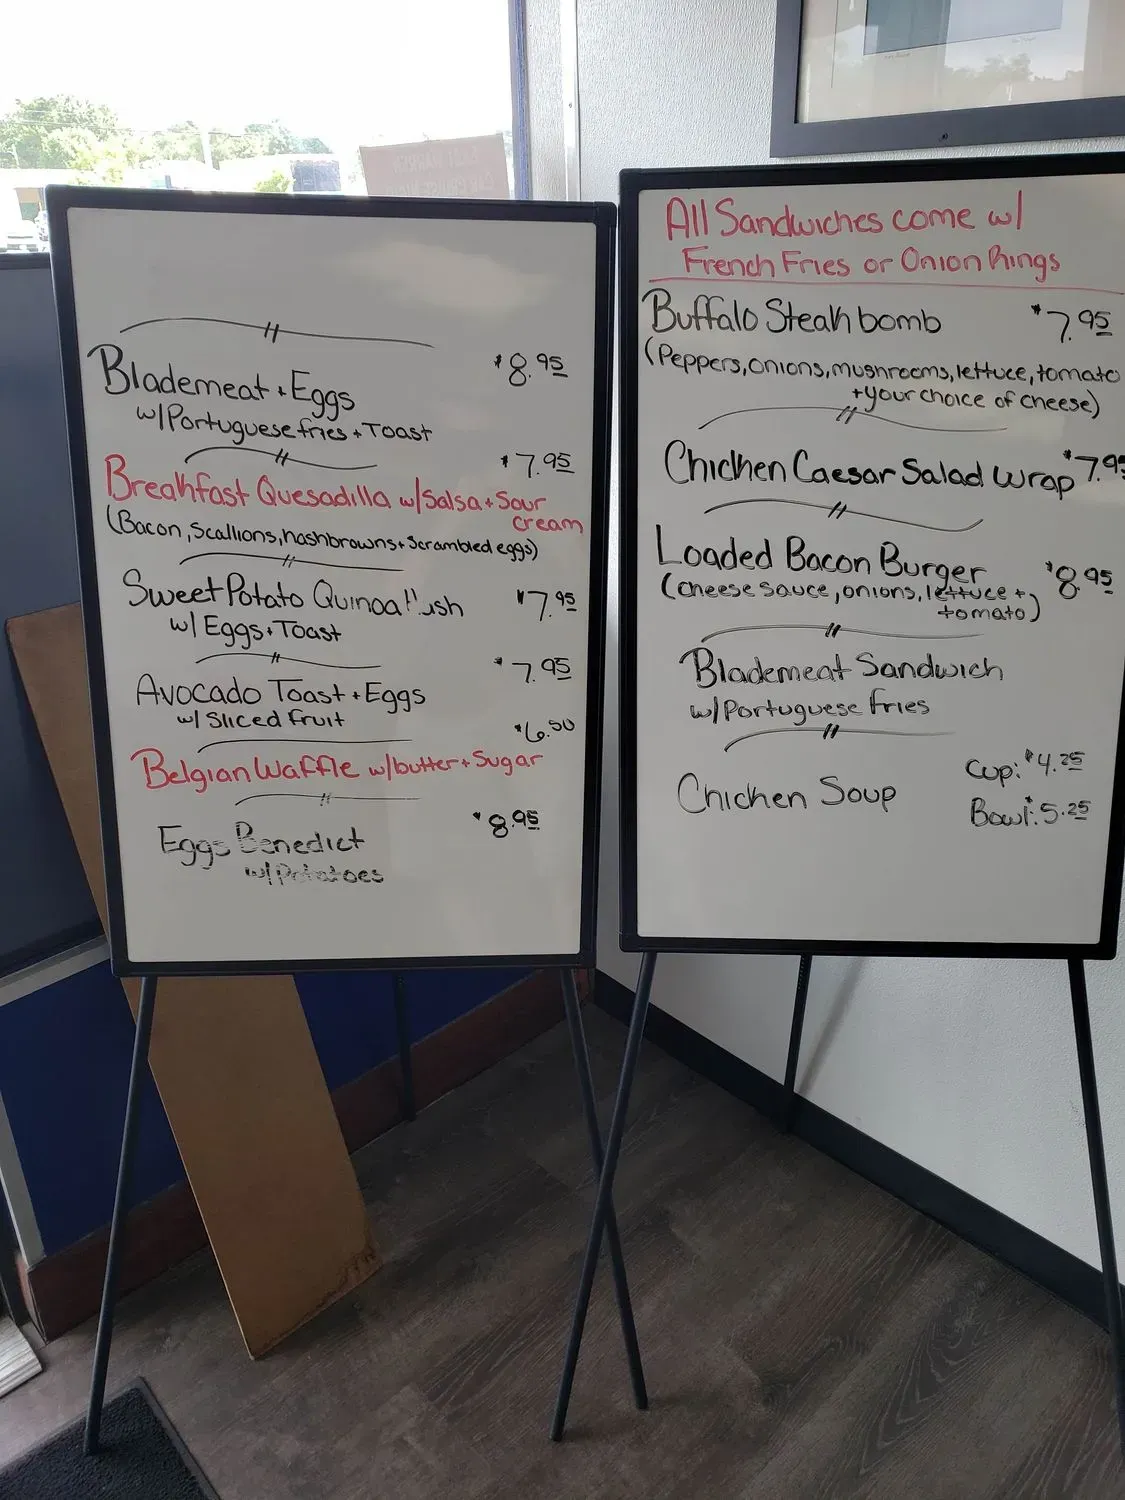 Blademeat + Eggs $8.95
w/Portuguese fries + Toast
$7.95
Breakfast Quesadilla w/Salsa + Sour
cream
(Bacon, Scallions, hashbrowns + Scrambled eggs)
Sweet Potato Quinoa Hush $7.95
w/ Eggs + Toast
Avocado Toast + Eggs $7.95
w/ Sliced fruit
$6.50
Belgian Waffle w/butter + Sugar
Eggs Benedict $8.95
w/Potatoes
All Sandwiches come w/
French Fries or Onion Rings
Buffalo Steak bomb $7.95
(Peppers, onions, mushrooms, lettuce, tomato
+ your choice of cheese)
Chicken Caesar Salad Wrap $7.95
Loaded Bacon Burger $8.95
(cheese sauce, onions, lettuce +
tomato)
Blademeat Sandwich
w/Portuguese fries
Chicken Soup Cup: $4.25
Bowl: $5.25